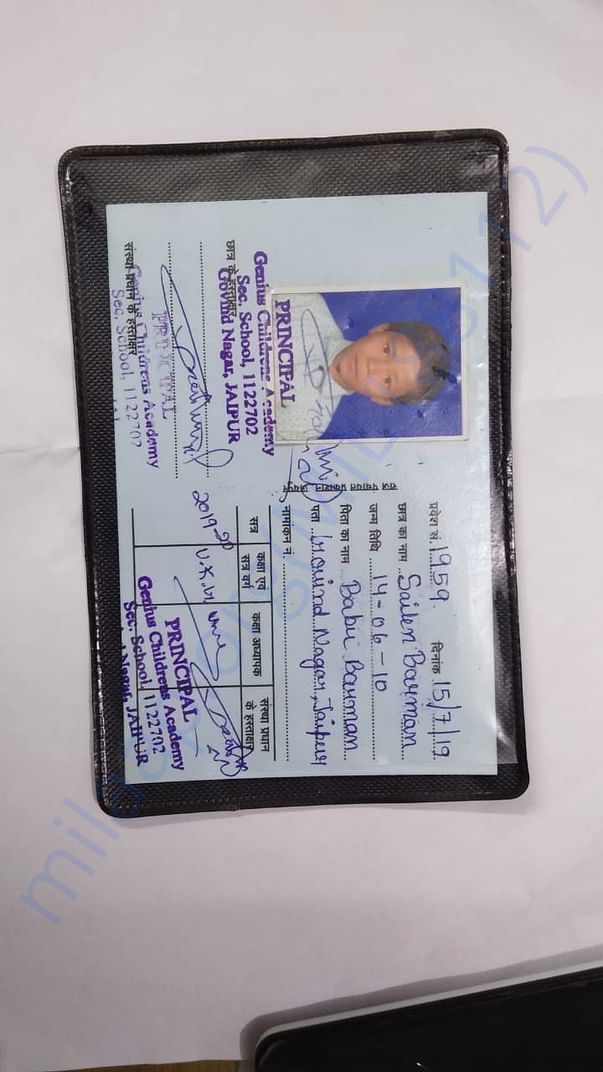 प्रवेश सं. 1959. दिनांक 15/7/19
छात्र का नाम Sailen Barman
जन्म तिथि 14-06-10
पिता का नाम Babu Barman
पता Govind Nagar, Jaipur
नामांकन नं.
सत्र कक्षा एवं सत्र वर्ग कक्षा अध्यापक संस्था प्रधान के हस्ताक्षर
2019-20
PRINCIPAL
Genius Childrens Academy
Sec. School, 1122702
Govind Nagar, JAIPUR
छात्र के हस्ताक्षर
PRINCIPAL
Genius Childrens Academy
Sec. School, 1122702
संस्था प्रधान के हस्ताक्षर
PRINCIPAL
Genius Childrens Academy
Sec. School, 1122702
Nagar, JAIPUR